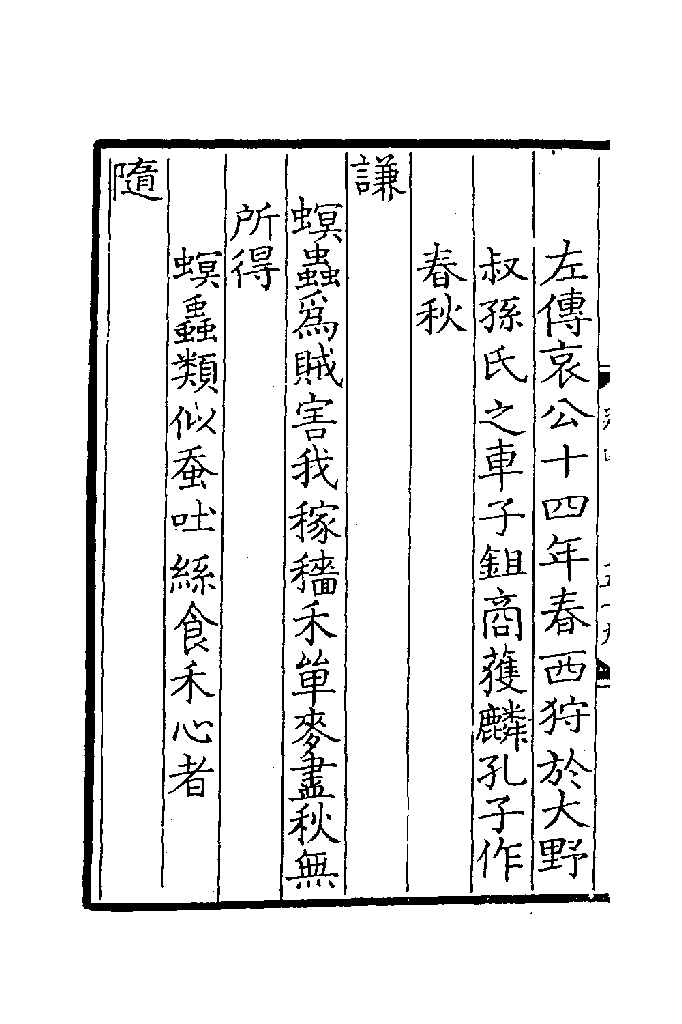 左傳哀公十四年春西狩於大野
叔孫氏之車子鉏商獲麟孔子作
春秋
謙
螟蟲爲賊害我稼穡禾單麥盡秋無
所得
螟蟲類似蚕吐絲食禾心者
隨